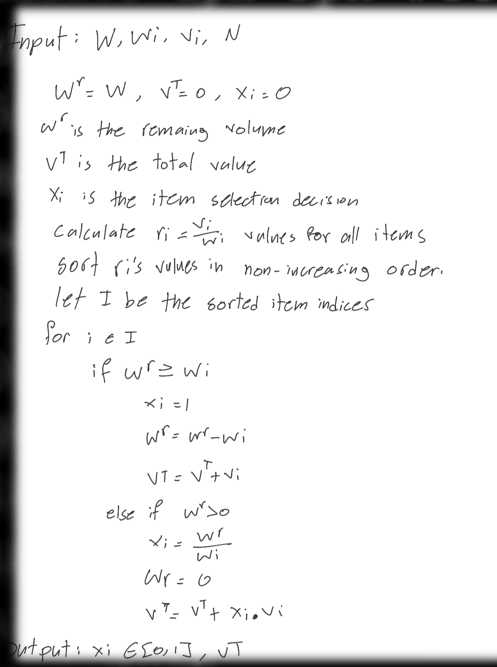 Input: W, wi, vi, N
Wʳ = W, vᵀ = 0, xi = 0
wʳ is the remaing volume
vᵀ is the total value
xi is the item selection decision
calculate ri = vi/wi values for all items
sort ri's values in non-increasing order.
let I be the sorted item indices
for i ∈ I
if wʳ ≥ wi
xi = 1
wʳ = wʳ - wi
vᵀ = vᵀ + vi
else if wʳ > 0
xi = wʳ/wi
wʳ = 0
vᵀ = vᵀ + xi . vi
output: xi ∈ [0,1], vᵀ